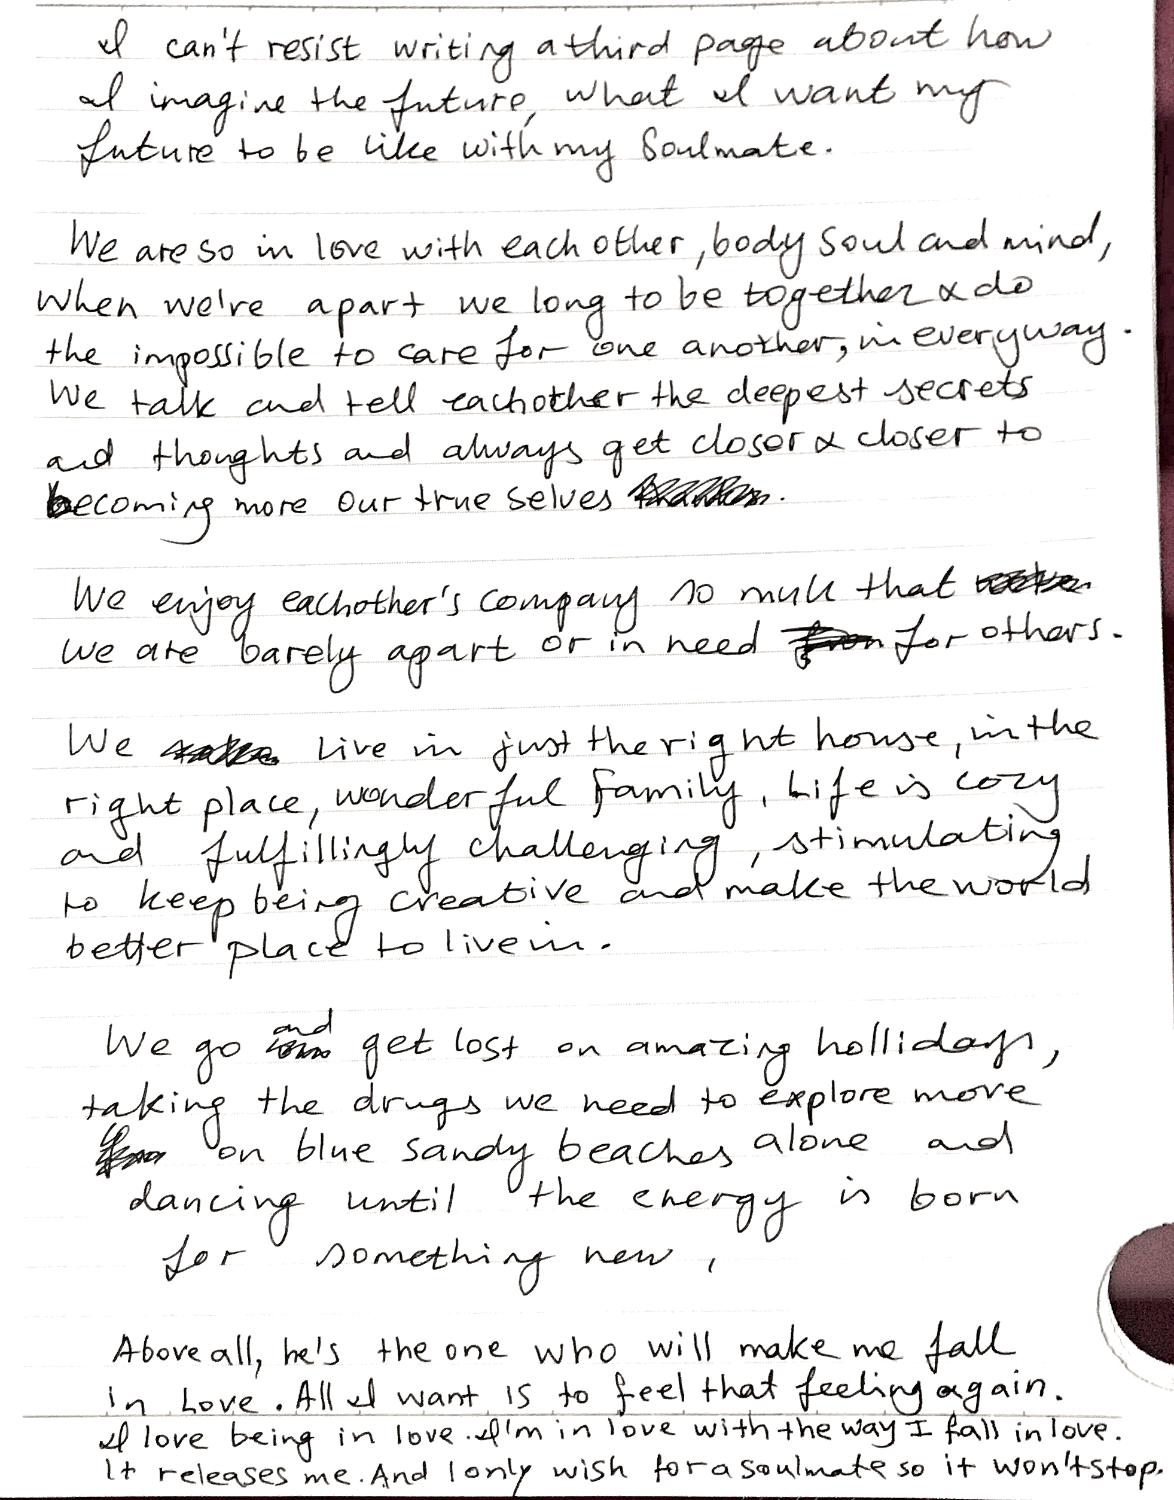 I can't resist writing a third page about how
I imagine the future, what I want my
future to be like with my Soulmate.
We are so in love with each other, body soul and mind,
when we're apart we long to be together & do
the impossible to care for one another, in everyway.
We talk and tell eachother the deepest secrets
and thoughts and always get closer & closer to
becoming more our true selves .
We enjoy eachother's company so much that
we are barely apart or in need for others.
We live in just the right house, in the
right place, wonderful family, Life is cozy
and fulfillingly challenging, stimulating
to keep being creative and make the world
better place to live in.
We go and get lost on amazing hollidays,
taking the drugs we need to explore more
on blue sandy beaches alone and
dancing until the energy is born
for something new,
Above all, he's the one who will make me fall
in Love. All I want is to feel that feeling again.
I love being in love. I'm in love with the way I fall in love.
It releases me. And I only wish for a soulmate so it won't stop.